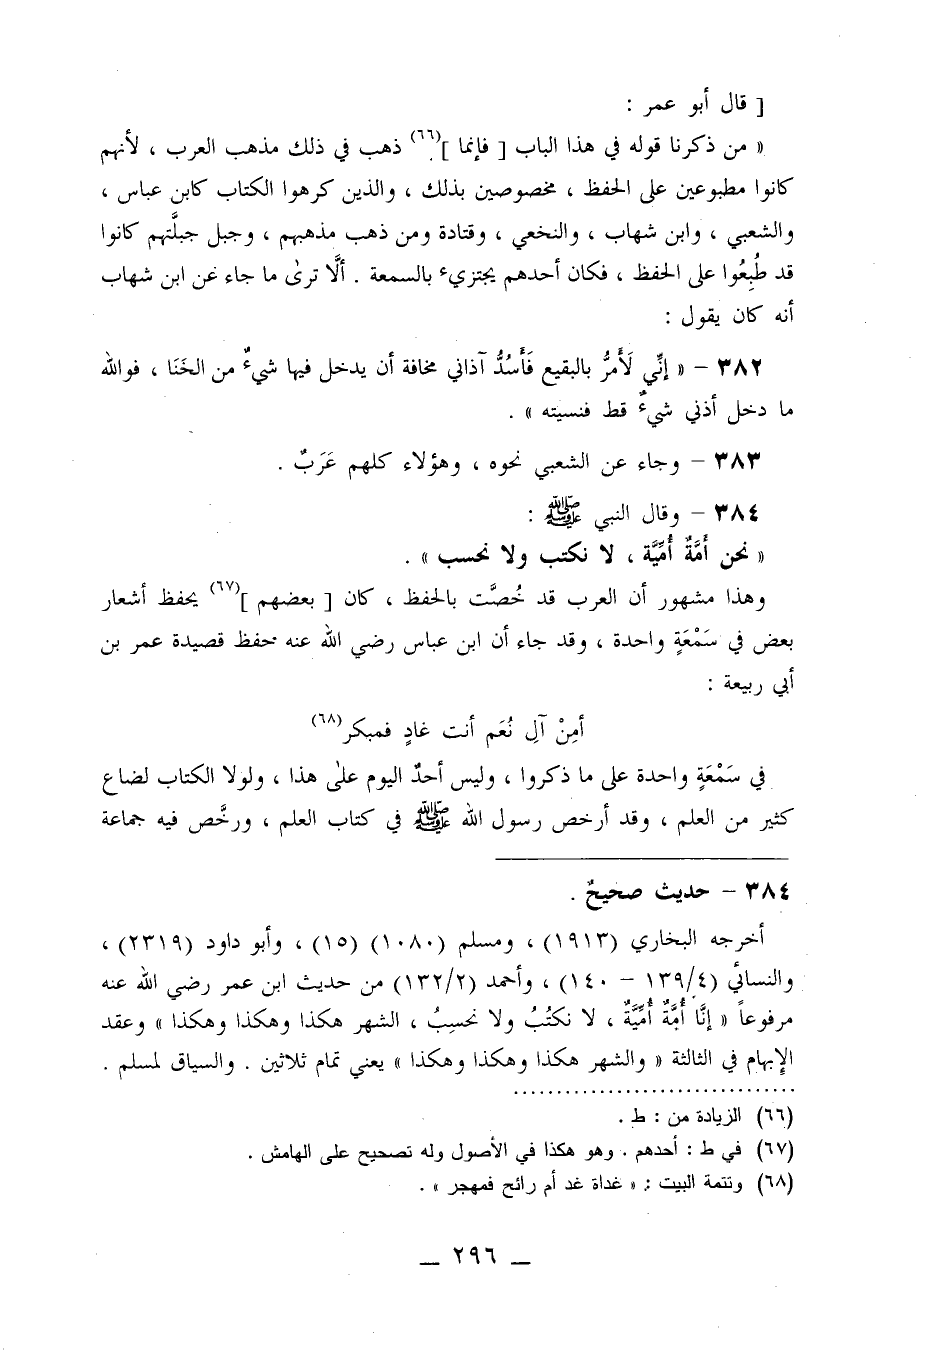 [ قال أبو عمر :
« من ذكرنا قوله في هذا الباب [ فإنما ](٦٦) ذهب في ذلك مذهب العرب ، لأنهم
كانوا مطبوعين على الحفظ ، مخصوصين بذلك ، والذين كرهوا الكتاب كابن عباس ،
والشعبي ، وابن شهاب ، والنخعي ، وقتادة ومن ذهب مذهبهم ، وجبل جبلَّتهم كانوا
قد طُبِعُوا على الحفظ ، فكان أحدهم يجتزيء بالسمعة . ألَّا ترىٰ ما جاء عن ابن شهاب
أنه كان يقول :
٣٨٢ – « إنِّي لَأَمرُّ بالبقيع فَأَسُدُّ آذاني مخافة أن يدخل فيها شيءٌ من الخَنَا ، فوالله
ما دخل أذني شيءٌ قط فنسيته » .
٣٨٣ – وجاء عن الشعبي نحوه ، وهؤلاء كلهم عَرَبٌ .
٣٨٤ – وقال النبي ﷺ :
« نحن أُمَّةٌ أُمِّيَّة ، لا نكتب ولا نحسب » .
وهذا مشهور أن العرب قد خُصَّت بالحفظ ، كان [ بعضهم ](٦٧) يحفظ أشعار
بعض في سَمْعَةٍ واحدة ، وقد جاء أن ابن عباس رضي الله عنه حفظ قصيدة عمر بن
أبي ربيعة :
أمِنْ آلِ نُعَم أنت غادٍ فمبكر(٦٨)
في سَمْعَةٍ واحدة على ما ذكروا ، وليس أحدٌ اليوم علىٰ هذا ، ولولا الكتاب لضاع
كثير من العلم ، وقد أرخص رسول الله ﷺ في كتاب العلم ، ورخَّص فيه جماعة
٣٨٤ – حديث صحيحٌ .
أخرجه البخاري (١٩١٣) ، ومسلم (١٠٨٠) (١٥) ، وأبو داود (٢٣١٩) ،
والنسائي (١٣٩/٤ – ١٤٠) ، وأحمد (١٣٢/٢) من حديث ابن عمر رضي الله عنه
مرفوعاً « إنَّا أُمَّةٌ أُمِّيَّةٌ ، لا نكتُبُ ولا نحسِبُ ، الشهر هكذا وهكذا وهكذا » وعقد
الإبهام في الثالثة « والشهر هكذا وهكذا وهكذا » يعني تمام ثلاثين . والسياق لمسلم .
(٦٦) الزيادة من : ط .
(٦٧) في ط : أحدهم . وهو هكذا في الأصول وله تصحيح على الهامش .
(٦٨) وتتمة البيت : « غداة غد أم رائح فمهجر » .
— ٢٩٦ —